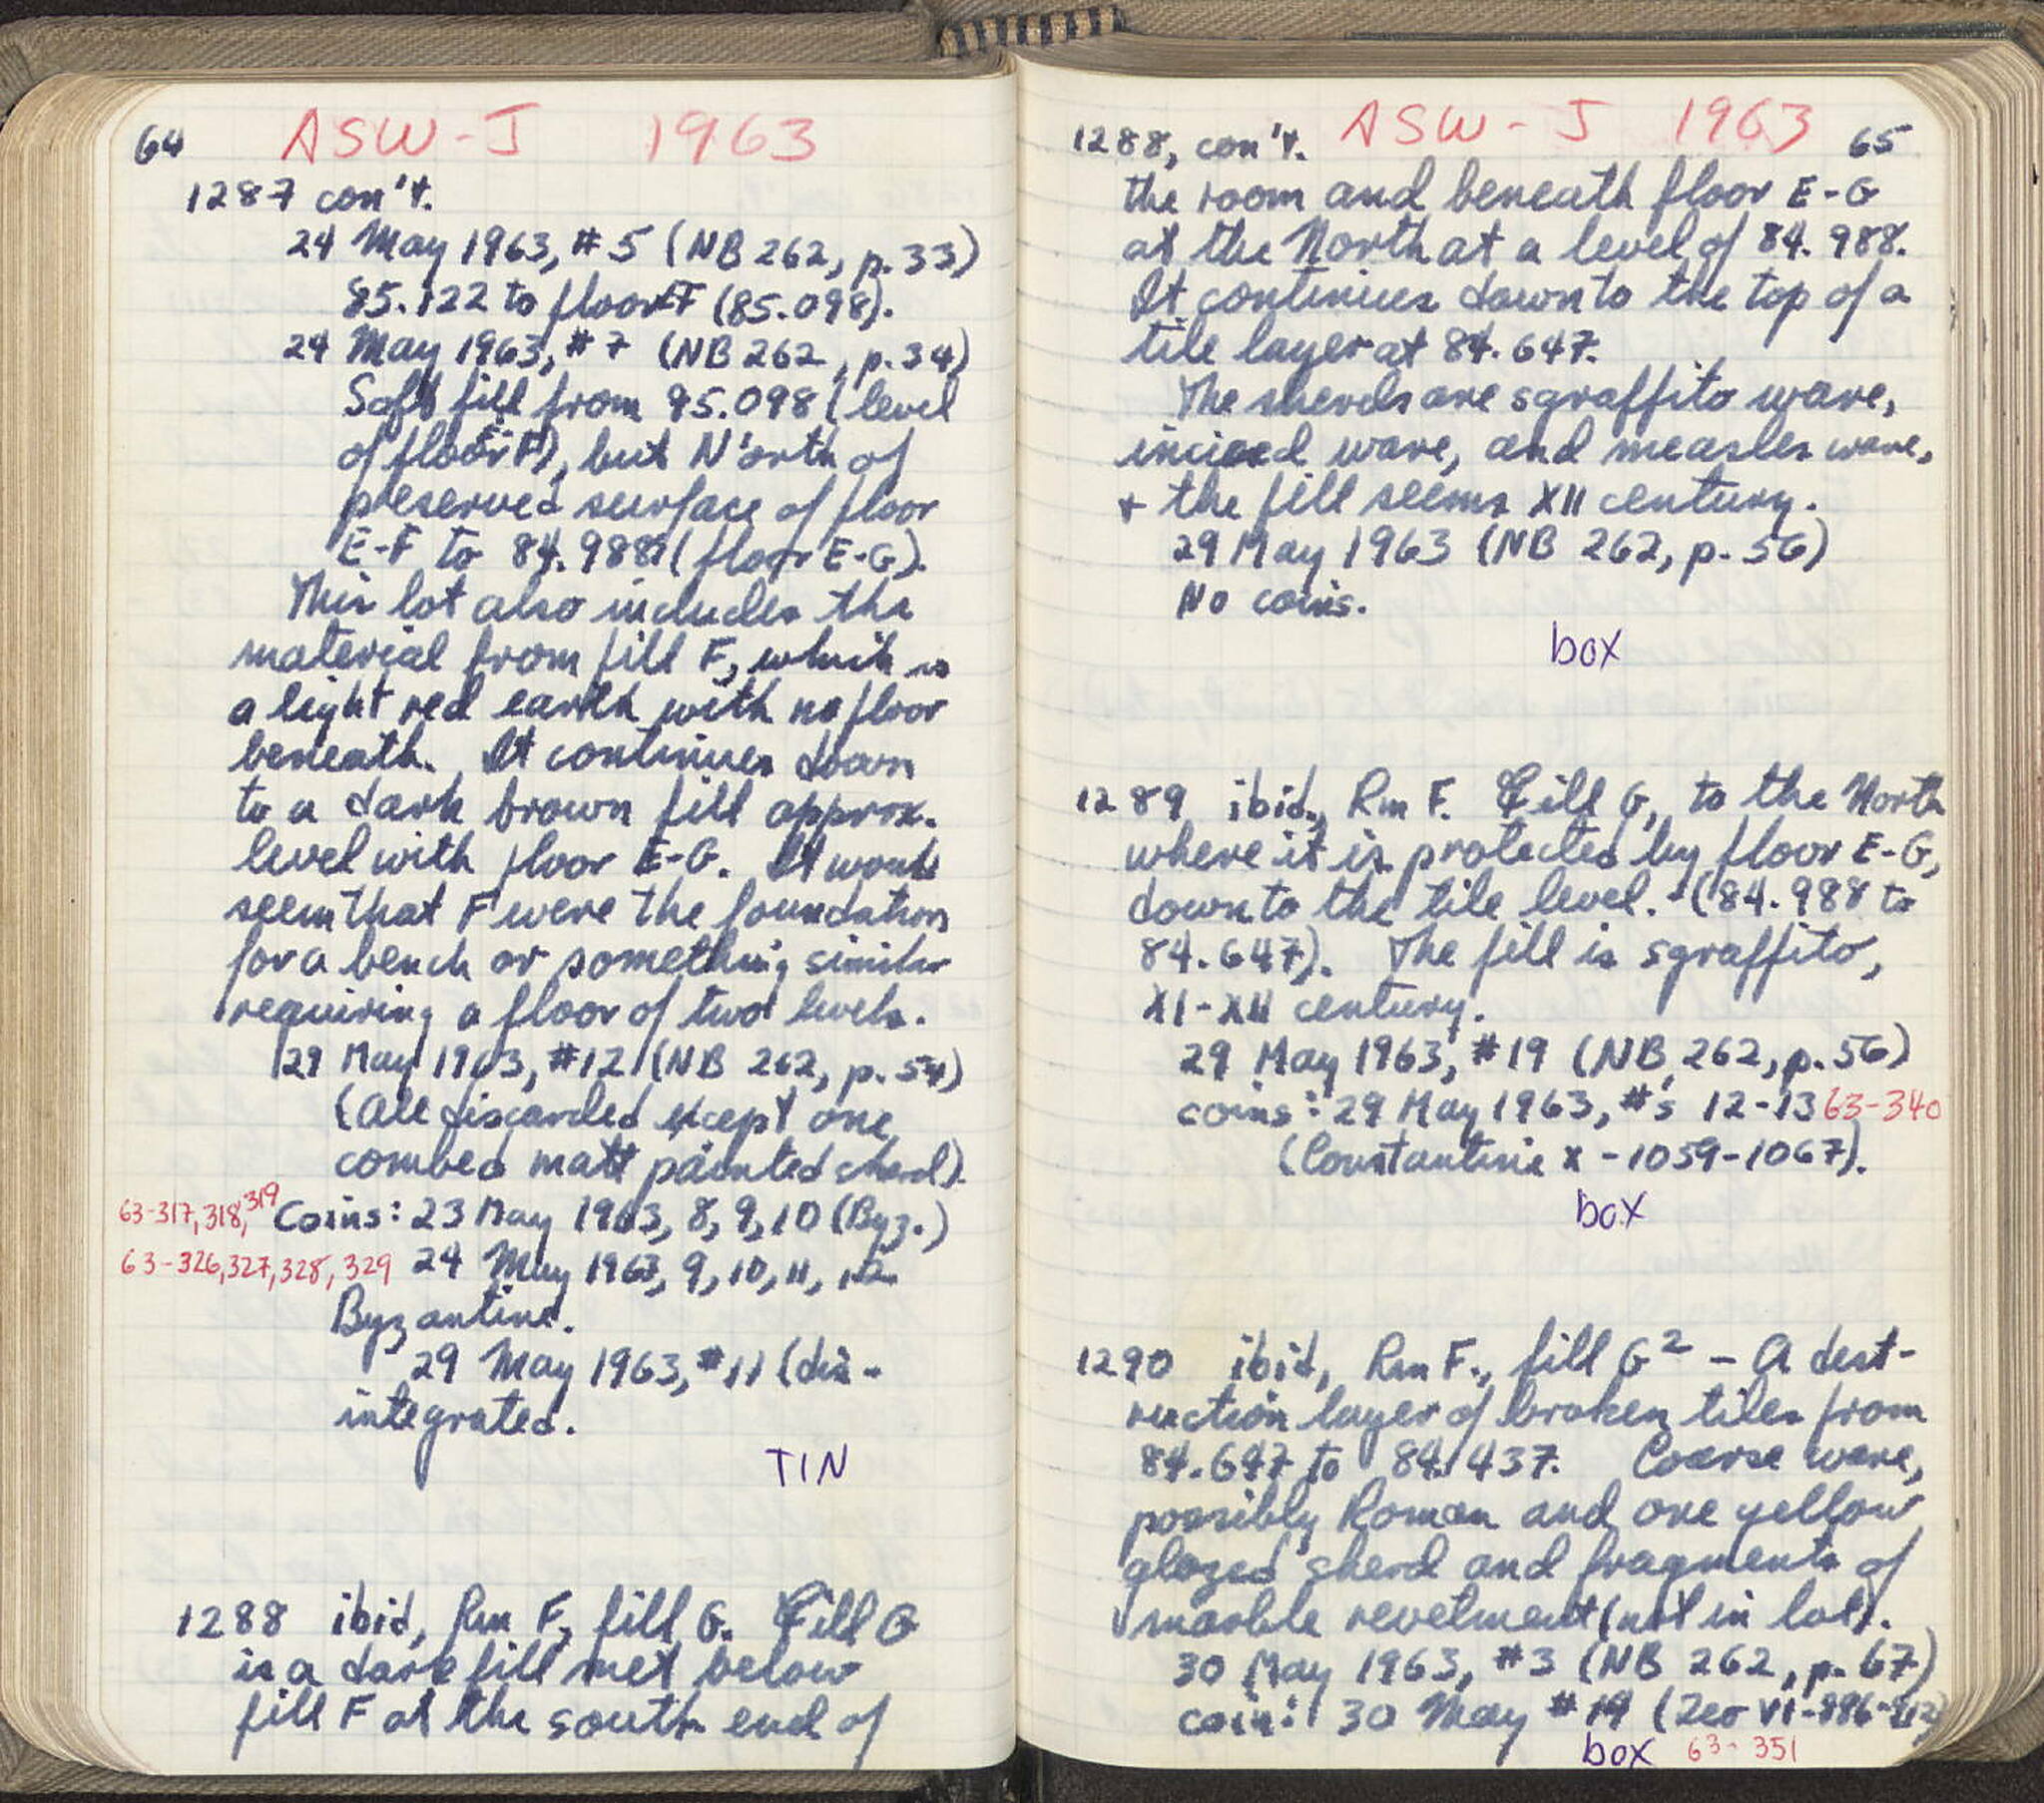 64 ASW-J 1963
1287 con't.
24 May 1963, #5 (NB 262, p. 33)
85.122 to floor F (85.098).
24 May 1963, #7 (NB 262, p. 34)
Soft fill from 85.098 (level
of floor E-F), but North of
preserved surface of floor
E-F to 84.988 (floor E-G).
This lot also includes the
material from fill F, which is
a light red earth with no floor
beneath. It continues down
to a dark brown fill approx.
level with floor E-G. It would
seem that F were the foundation
for a bench or something similar
requiring a floor of two levels.
29 May 1963, #12 (NB 262, p. 54)
(All discarded except one
combed matt painted sherd).
63-317, 318, 319 Coins: 23 May 1963, 8, 9, 10 (Byz.)
63-326, 327, 328, 329 24 May 1963, 9, 10, 11, 12
Byzantine.
29 May 1963, #11 (dis-
integrated.
TIN
1288 ibid, Rm F, fill G. Fill G
is a dark fill met below
fill F at the south end of
1288, con't. ASW-J 1963 65
the room and beneath floor E-G
at the North at a level of 84.988.
It continues down to the top of a
tile layer at 84.647.
The sherds are sgraffito ware,
incised ware, and measles ware,
+ the fill seems XII century.
29 May 1963 (NB 262, p. 56)
No coins.
box
1289 ibid., Rm F. Fill G, to the North
where it is protected by floor E-G,
down to the tile level. (84.988 to
84.647). The fill is sgraffito,
XI-XII century.
29 May 1963, #19 (NB 262, p. 56)
coins: 29 May 1963, #'s 12-13 63-340
(Constantine X - 1059-1067).
box
1290 ibid, Rm F., fill G² - A dest-
ruction layer of broken tiles from
84.647 to 84.437. Coarse ware,
possibly Roman and one yellow
glazed sherd and fragments of
marble revetment (not in lot).
30 May 1963, #3 (NB 262, p. 67)
coin: 30 May #19 (Leo VI-886-912)
box 63-351